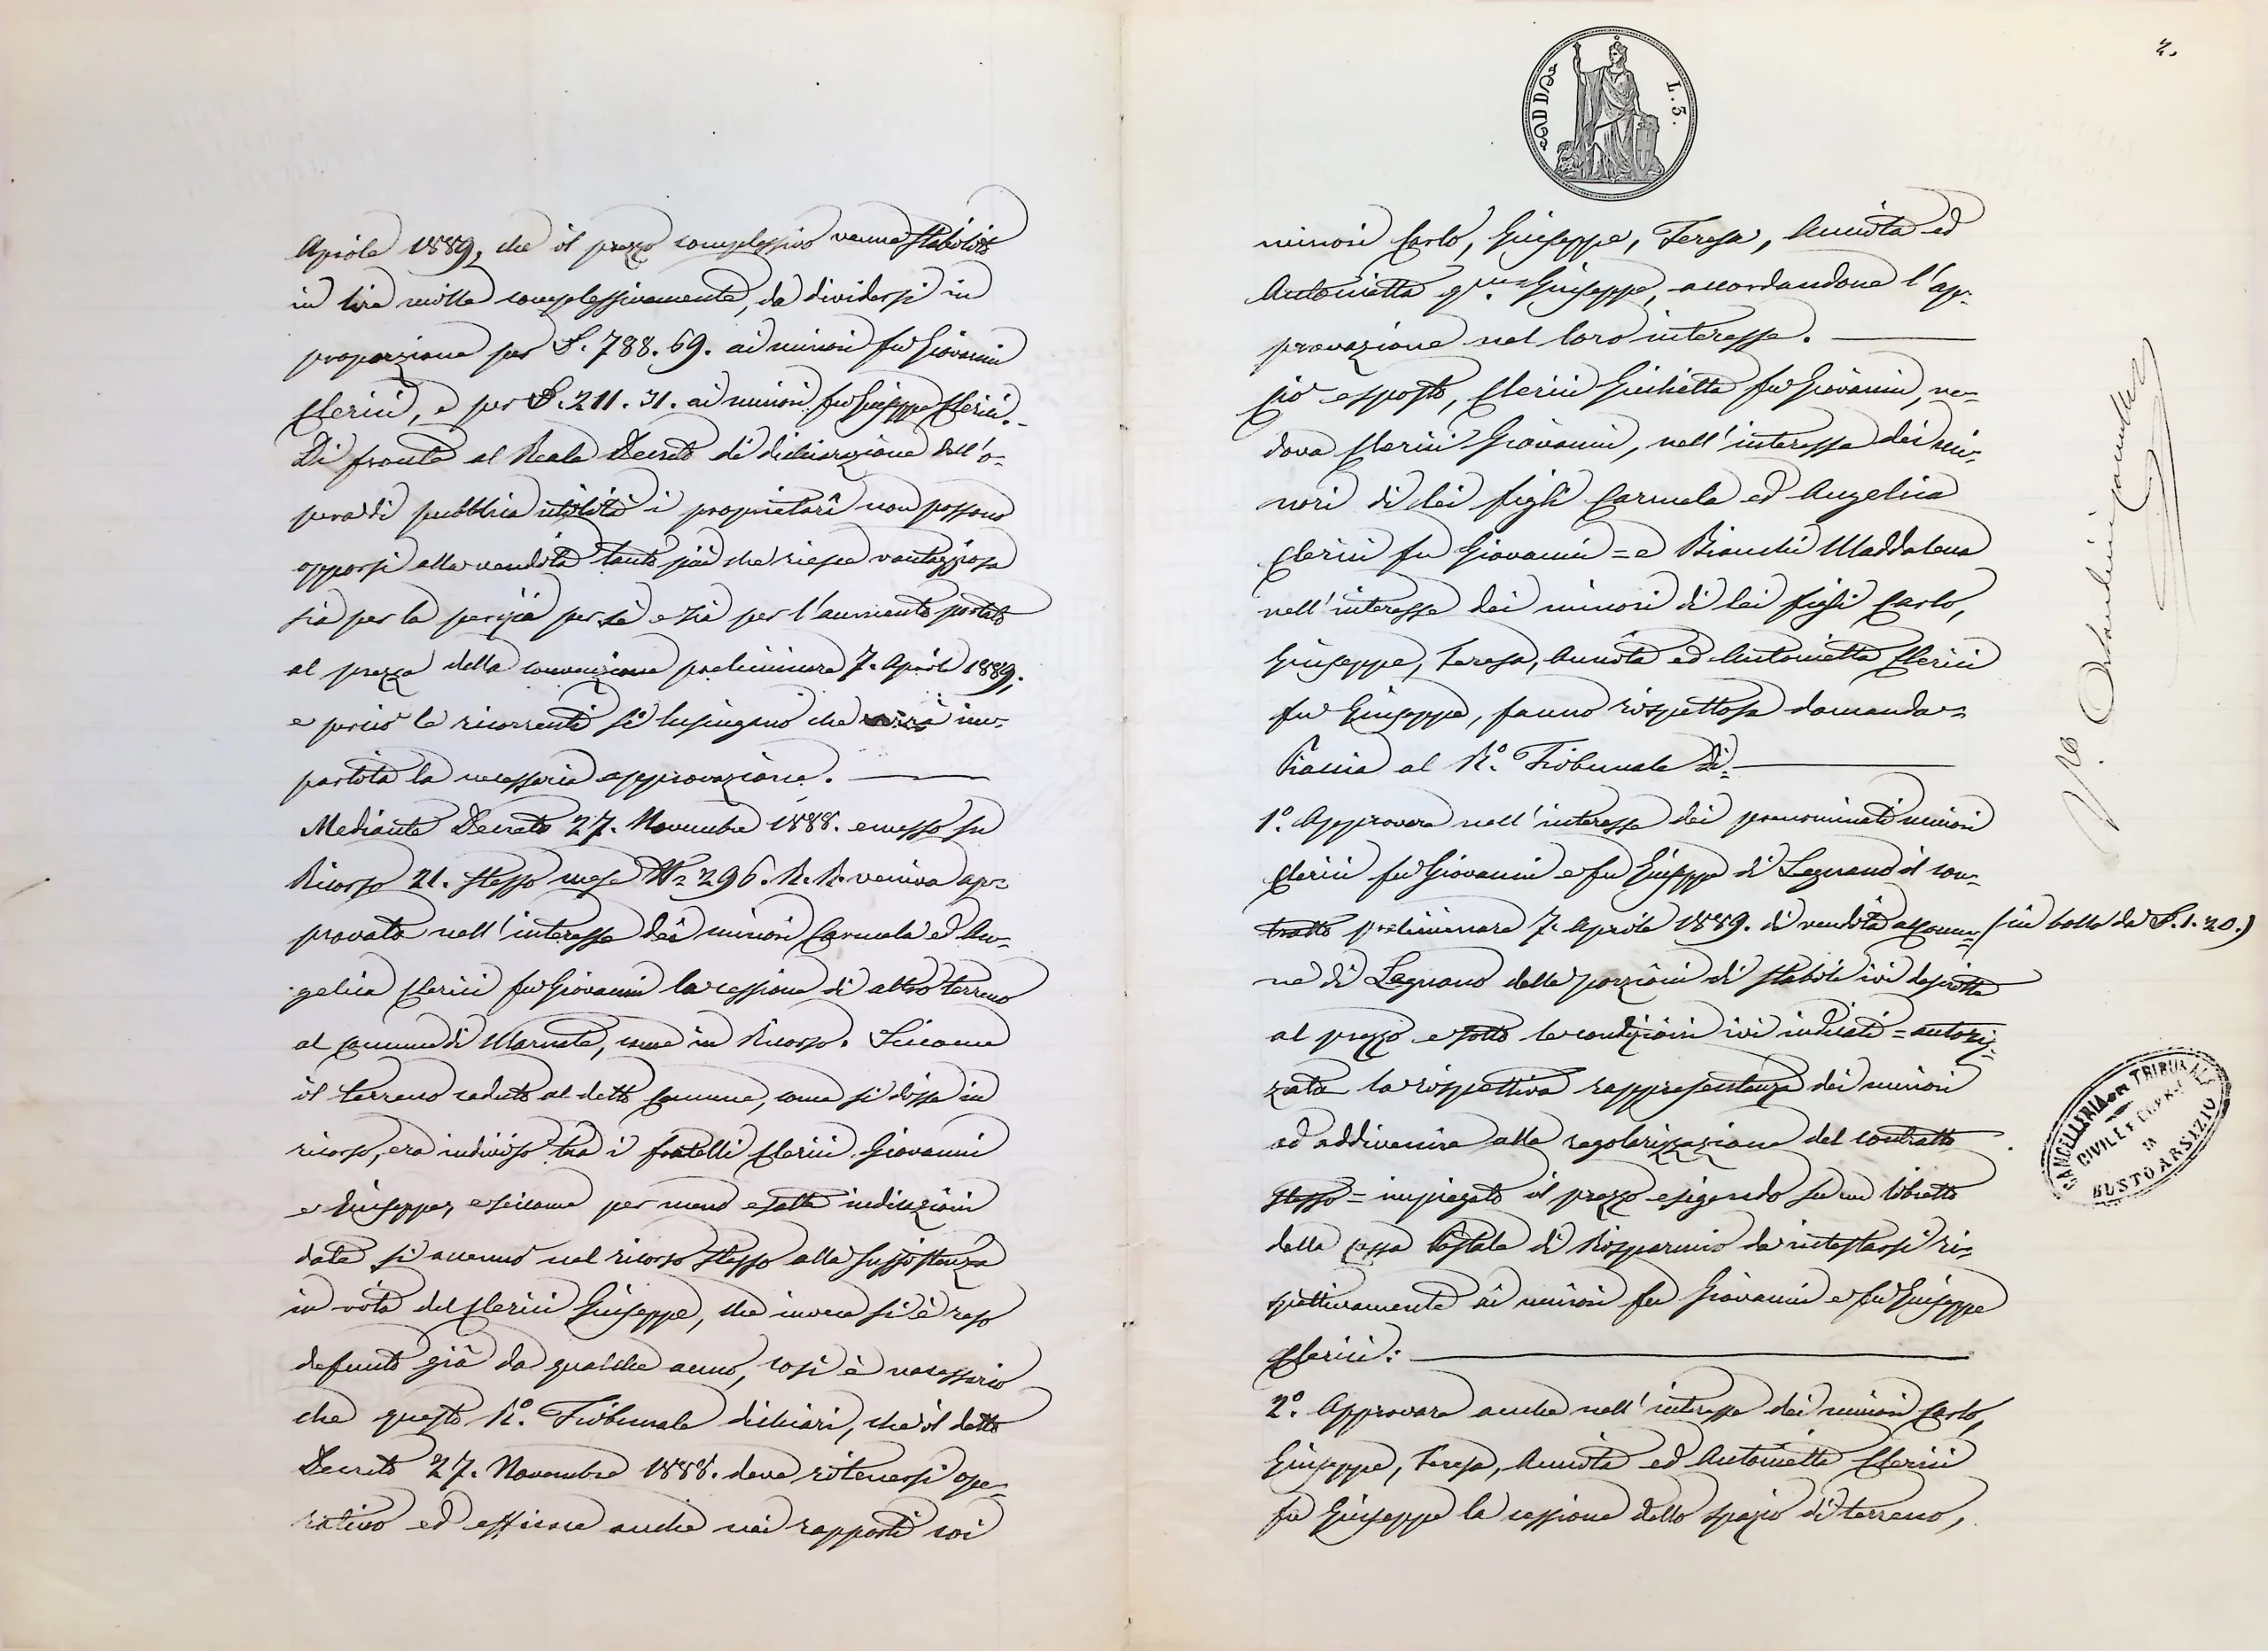 Aprile 1889, che il prezzo complessivo venne stabilito
in lire mille complessivamente, da dividersi in
proporzione per L. 788.69. ai minori fu Giovanni
Clerici, e per L. 211.31. ai minori fu Giuseppe Clerici.
Di fronte al Reale Decreto di dichiarazione dell'o-
pera di pubblica utilità i proprietarî non possono
opporsi alla vendita tanto più che riesce vantaggiosa
sia per la perizia per sè e sia per l'aumento portato
al prezzo della convenzione preliminare 7. Aprile 1889;
e perciò le ricorrenti si lusingano che verrà im-
partita la necessaria approvazione.
Mediante Decreto 27. Novembre 1888. emesso su
Ricorso 21. stesso mese N= 296. R. R. veniva ap=
provata nell'interesse dei minori Carmela ed An-
gelica Clerici fu Giovanni la cessione di altro terreno
al Comune di Marnate, come in Ricorso. Siccome
il terreno ceduto al detto Comune, come si disse in
ricorso, era indiviso tra i fratelli Clerici Giovanni
e Giuseppe, e siccome per meno esatte indicazioni
date si accennò nel ricorso stesso alla sussistenza
in vita del Clerici Giuseppe, che invece si è reso
defunto già da qualche anno, così è necessario
che questo R.° Tribunale dichiari, che il detto
Decreto 27. Novembre 1888. deve ritenersi ope-
rativo ed efficace anche nei rapporti coi
2.
L. 3.
minori Carlo, Giuseppe, Teresa, Annita ed
Antonietta q.m Giuseppe, accordandone l'ap-
provazione nel loro interesse.
Ciò esposto, Clerici Giulietta fu Giovanni, ve-
dova Clerici Giovanni, nell'interesse dei mi-
nori di lei figli Carmela ed Angelica
Clerici fu Giovanni = e Bianchi Maddalena
nell'interesse dei minori di lei figli Carlo,
Giuseppe, Teresa, Annita ed Antonietta Clerici
fu Giuseppe, fanno rispettosa domanda=
Piaccia al R.° Tribunale di=
1.° Approvare nell'interesse dei prenominati minori
Clerici fu Giovanni e fu Giuseppe di Legnano il con-
tratto preliminare 7. Aprile 1889. di vendita al Comu= (in bollo da L. 1.20.)
ne di Legnano delle porzioni di stabile ivi descritte
al prezzo e sotto le condizioni ivi indicati = autoriz-
zata la rispettiva rappresentanza dei minori
ad addivenire alla regolarizzazione del contratto
stesso = impiegato il prezzo esigendo su un libretto
della Cassa Postale di Risparmio da intestarsi ri=
spettivamente ai minori fu Giovanni e fu Giuseppe
Clerici:
2.° Approvare anche nell'interesse dei minori Carlo,
Giuseppe, Teresa, Annita ed Antonietta Clerici
fu Giuseppe la cessione dello spazio di terreno,
CANCELLERIA DEL TRIBUNALE
CIVILE E CORR.
IN
BUSTO ARSIZIO